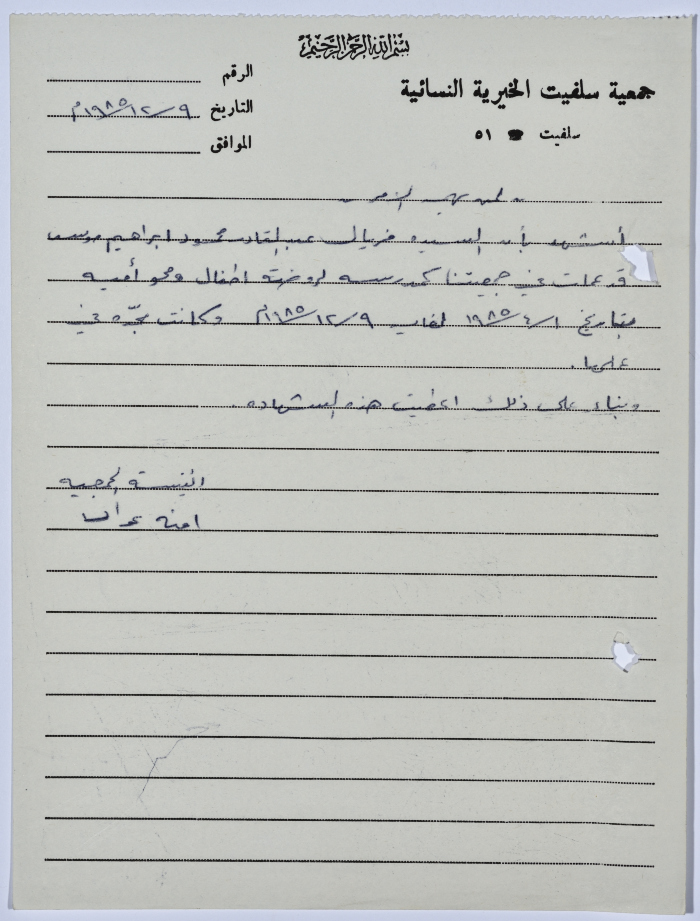 بسم الله الرحمن الرحيم
جمعية سلفيت الخيرية النسائية
سلفيت ☎ ٥١
الرقم
التاريخ ٩/١٢/١٩٨٥م
الموافق
لمن يهمه الأمر
أشهد بأن السيده فريال عبدالقادر محمود ابراهيم موسى
قد عملت في جمعيتنا كمدرسه لروضة اطفال ومحو أميه
بتاريخ ١/٤/١٩٨٥ لغاية ٩/١٢/١٩٨٥م وكانت مجدّه في
عملها.
وبناء على ذلك اعطيت هذه الشهاده.
رئيسة الجمعيه
امنه